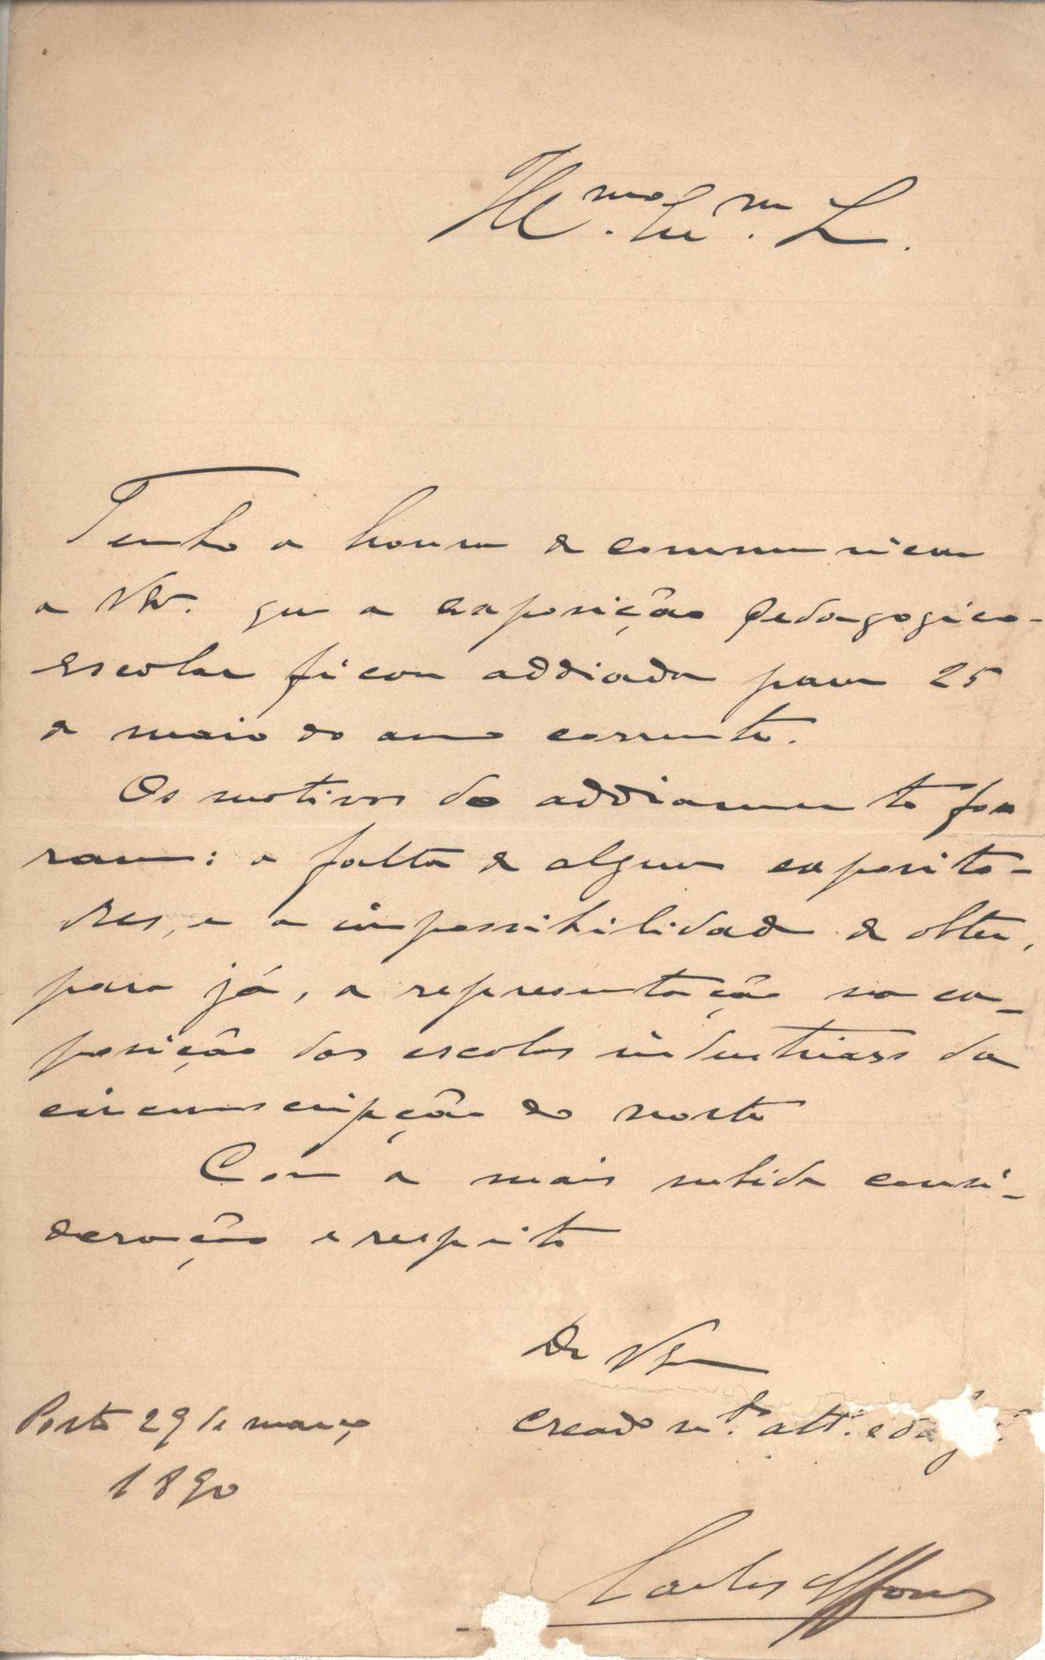 Ill.mo Ex.mo Sr.
Tenho a honra de communicar
a VEx. que a exposição pedagogico-
escolar ficou addiada para 25
de maio do anno corrente.
Os motivos do addiamento fo
ram: a falta de alguns exposito-
res, e a impossibilidade de obter,
para já, a representação na ex-
posição das escolas industriaes da
circumscripção do norte
Com a mais subida consi-
deração e respeito
De VEx
Porto 29 de março
creado m.to att.o e
1890
Carlos Affonso